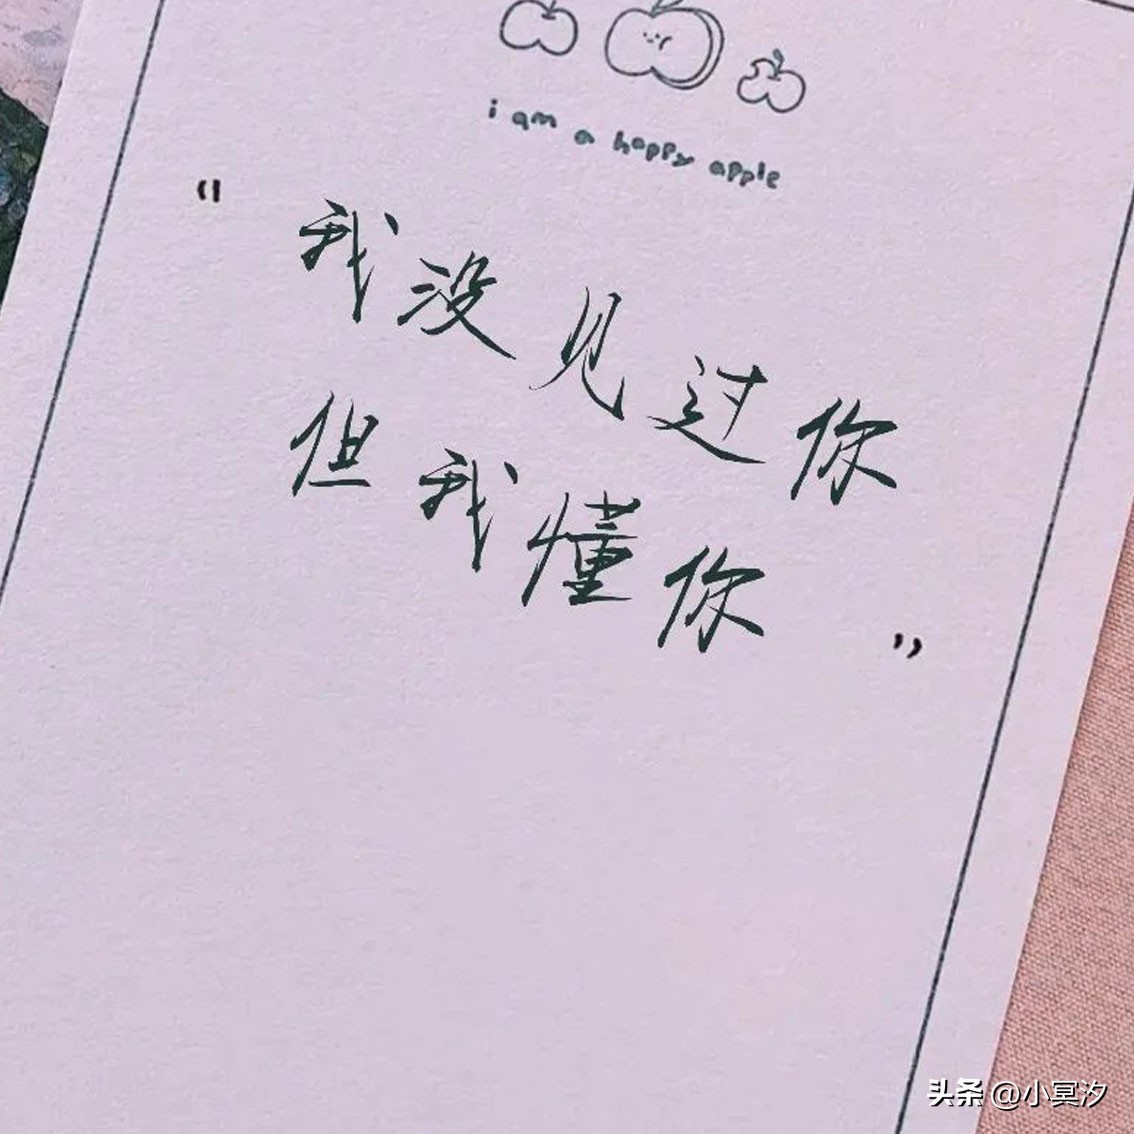 i am a happy apple
“我没见过你
但我懂你”
头条 @小冥汐